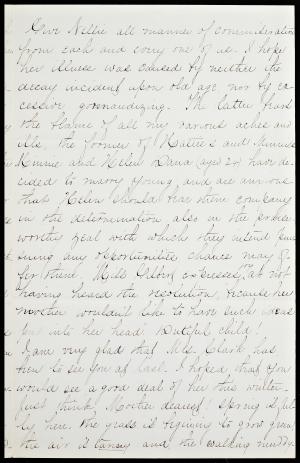 Give Nellie all manner of commiseration
from each and every one of us. I hope
her illness was caused by neither the
decay incident upon old age nor by ex-
cessive gormandizing. The latter
the blame of all my various aches and
ills, the former of Hattie's and Minnie's
Minnie and Helen Dana (aged 24) have de-
cided to marry young and are anxious
that Helen should bear them company
in the determination also in the praise
worthy zeal with which they intend
any opportunities chance may of-
fer them. Miss expresses, as not
having heard the resolution, because her
mother wouldn't like to have such ideas
put into her head. Dutiful child!
I am very glad that Mrs. Clark has
been to see you at last. I hoped that you
would see a good deal of her this winter.
Just think, Mother dearest! spring is
here, the grass is beginning to grow green
the air is and the walking muddy.